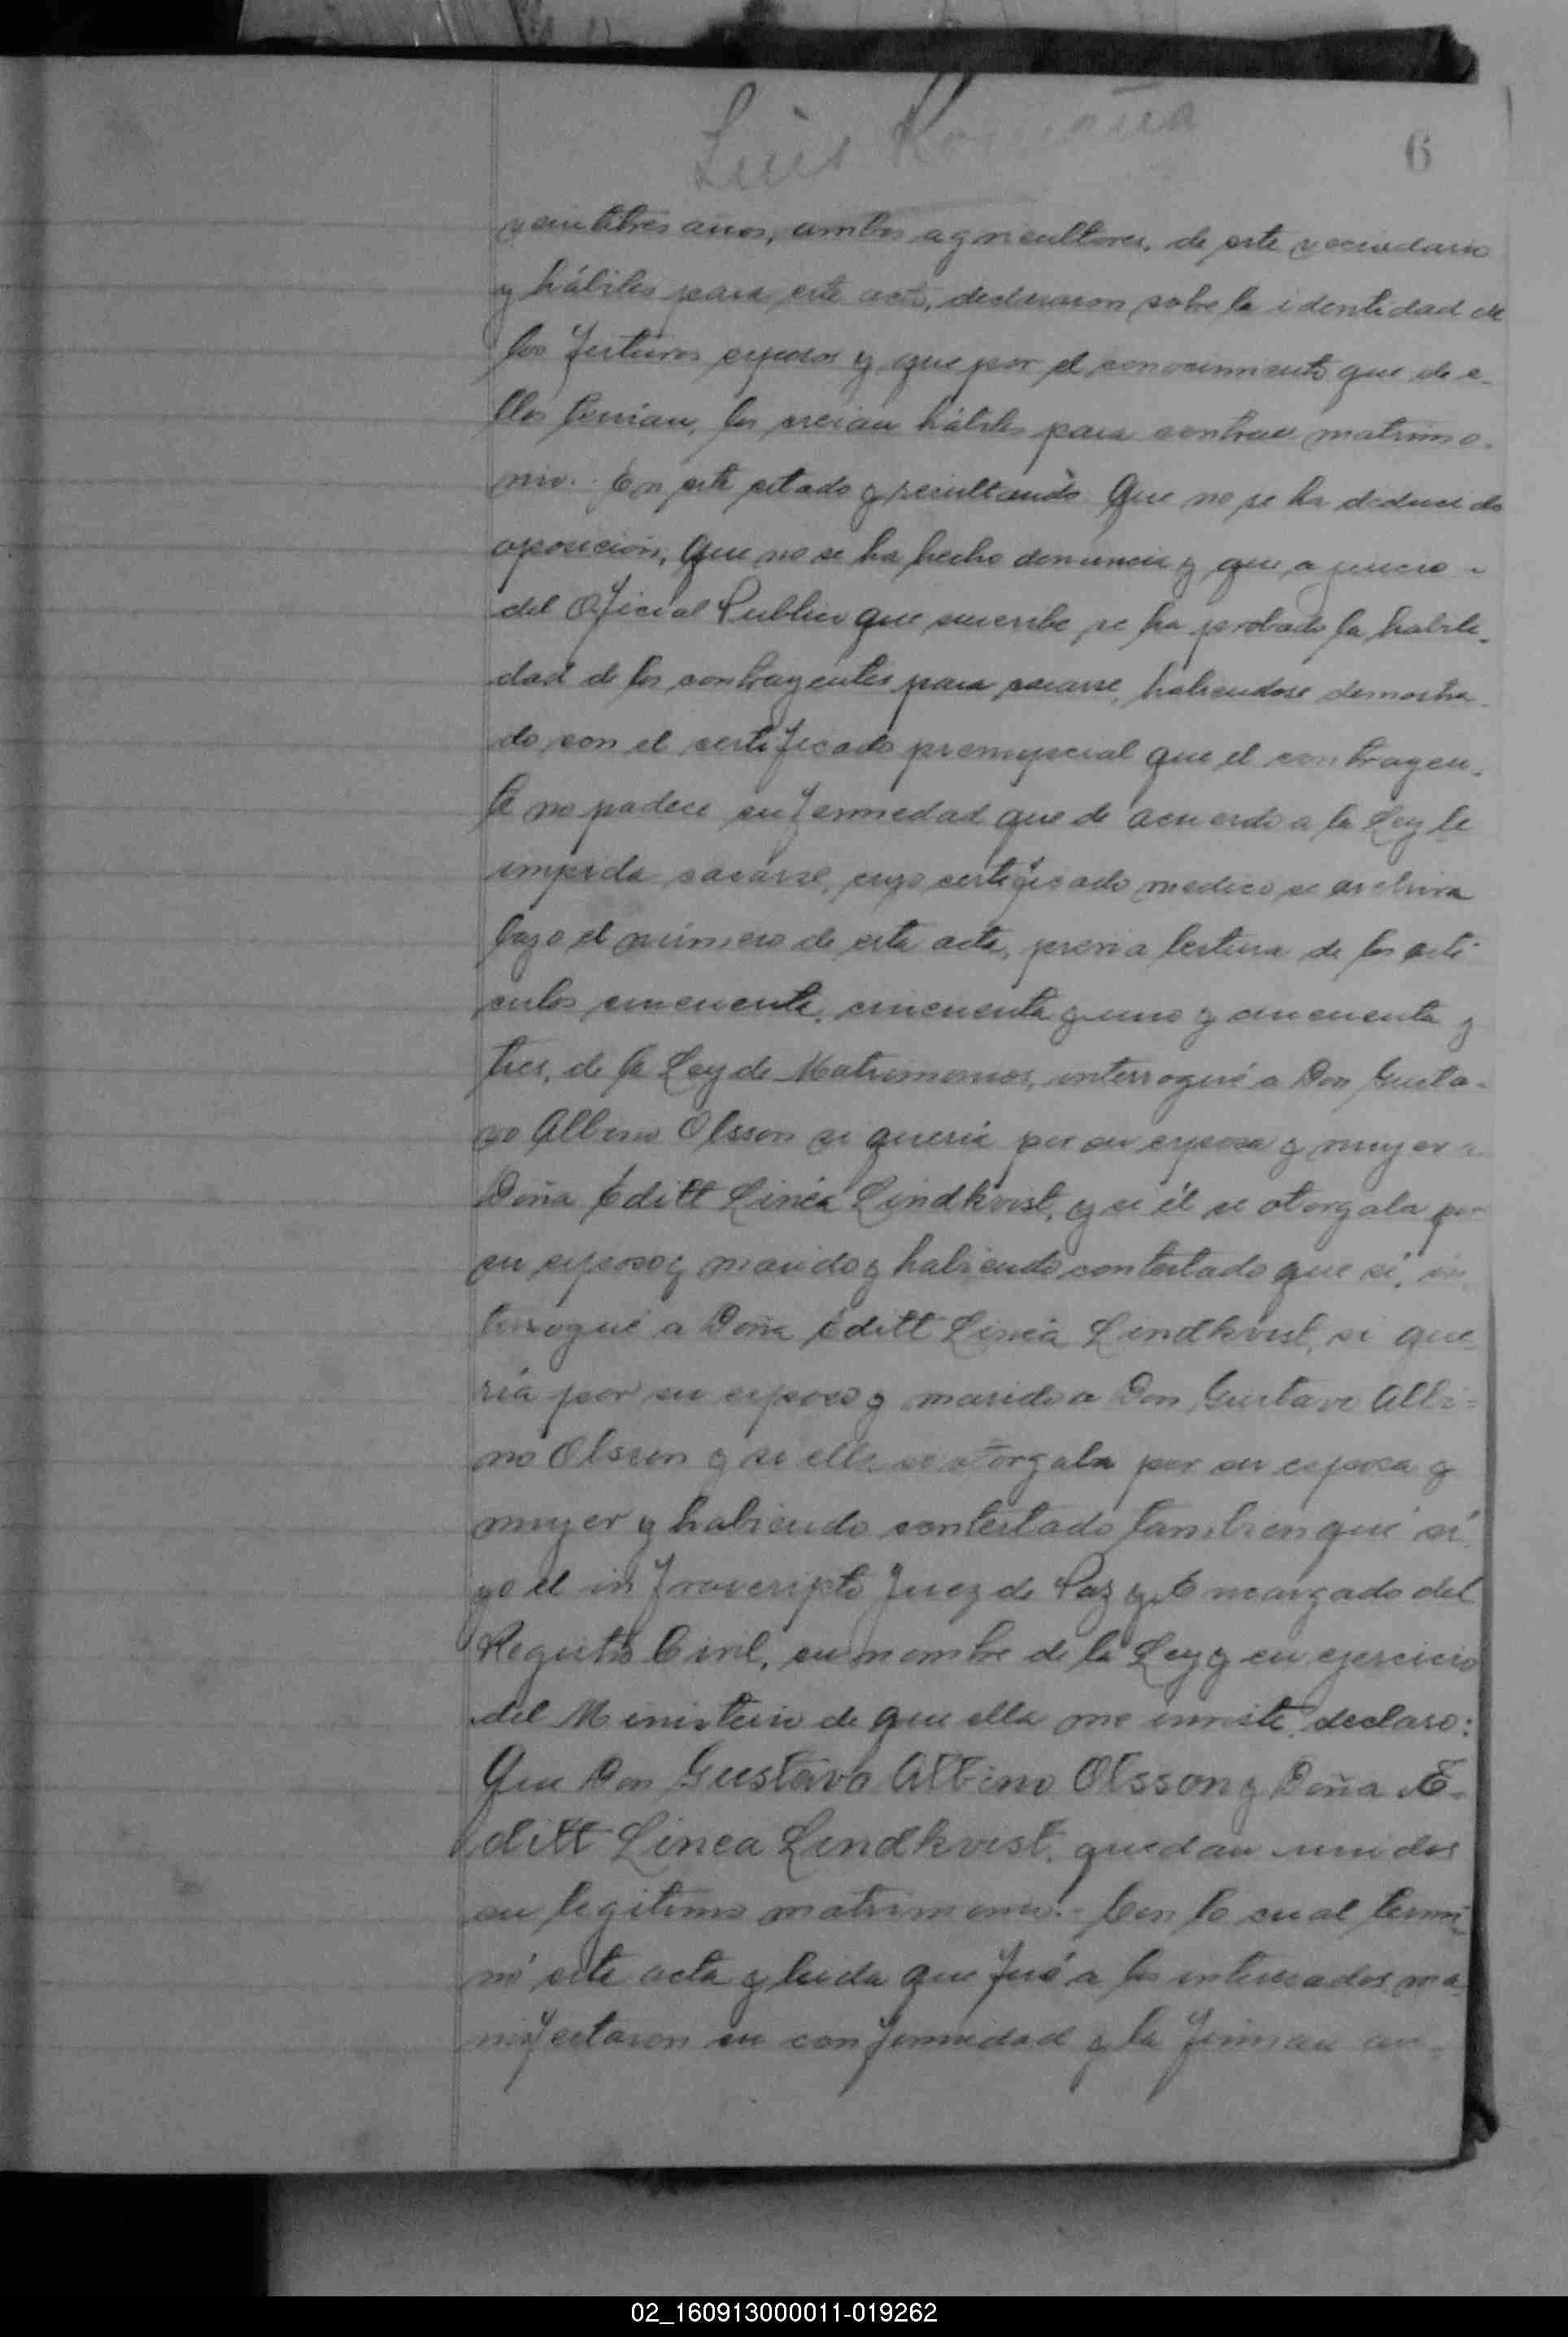 Luis
6
veintitres años, ambos agricultores, de este vecindario
y hábiles para este acto, declararon sobre la identidad de
los futuros esposos y que por el conocimiento que de e-
llos tenían, los creian hábiles para contraer matrimo-
nio.- En este estado y resultando Que no se ha deducido
oposición, Que no se ha hecho denuncia y que a juicio -
del Oficial Publico que suscribe se ha probado la habili-
dad de los contrayentes para casarse, habiendose demostra-
do con el certificado prenupcial que el contrayen-
te no padece enfermedad que de acuerdo a la Ley le
impida casarse, cuyo certificado medico se archiva
bajo el número de esta acta, previa lectura de los arti-
culos cincuenta, cincuenta y uno y cincuenta y
tres, de la Ley de Matrimonios, interrogué a Don Gusta-
vo Albino Olsson si quería por su esposa y mujer a
Doña Editt Linéa Lindkvist, y si él se otorgaba por
su esposo y marido y habiendo contestado que sí, in-
terrogué a Doña Editt Linéa Lindkvist, si que-
ría por su esposo y marido a Don Gustavo Albi-
no Olsson y si ella se otorgaba por su esposa y
mujer y habiendo contestado tambien que sí,
yo el infrascripto Juez de Paz y Encargado del
Registro Civil, en nombre de la Ley y en ejercicio
del Ministerio de que ella me inviste, declaro:
Que Don Gustavo Albino Olsson y Doña E-
ditt Linea Lindkvist, quedan unidos
en legitimo matrimonio.- Con lo cual termi-
nó este acta y leida que fué a los interesados ma-
nifestaron su conformidad y la firman an-
02_160913000011-019262